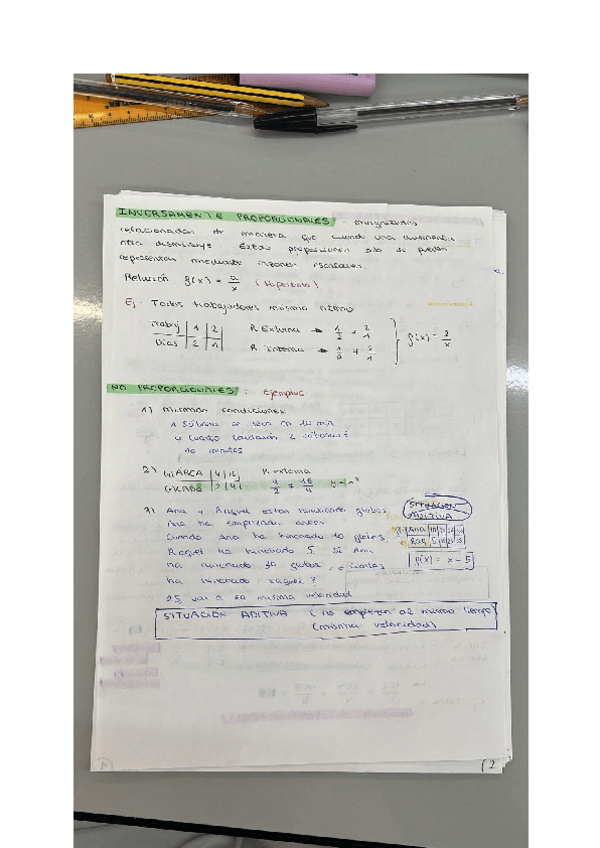 INVERSAMENTE PROPORCIONALES : magnitudes
relacionadas de manera que cuando una aumenta
otra disminuye. Estas proporciones no se pueden
representar mediante razones escalares.
Relación f(x) = a/x (Hipérbola)
Ej. Todos trabajadores mismo ritmo
Trabaj | 1 | 2
Dias | 2 | 1
R Externa → 1/2 ≠ 2/1
R Interna →
f(x) = 2/x
NO PROPORCIONALES : Ejemplos
1) Mismas condiciones
1 sábana se seca en 10 min
¿ Cuánto tardarán 2 sábanas?
10 minutos
2) 4 | 16
LADO 2 | 4
R externa
4/2 ≠ 16/4
3) Ana y Raquel están hinchando globos
Ana ha empezado antes
Cuando Ana ha hinchado 10 globos,
Raquel ha hinchado 5. Si Ana
ha hinchado 30 globos, ¿Cuántos
ha hinchado Raquel?
25, van a la misma velocidad
SITUACIÓN
ADITIVA
Ana
Raq
f(x) = x - 5
SITUACIÓN ADITIVA (no empiezan al mismo tiempo)
(misma velocidad)
2